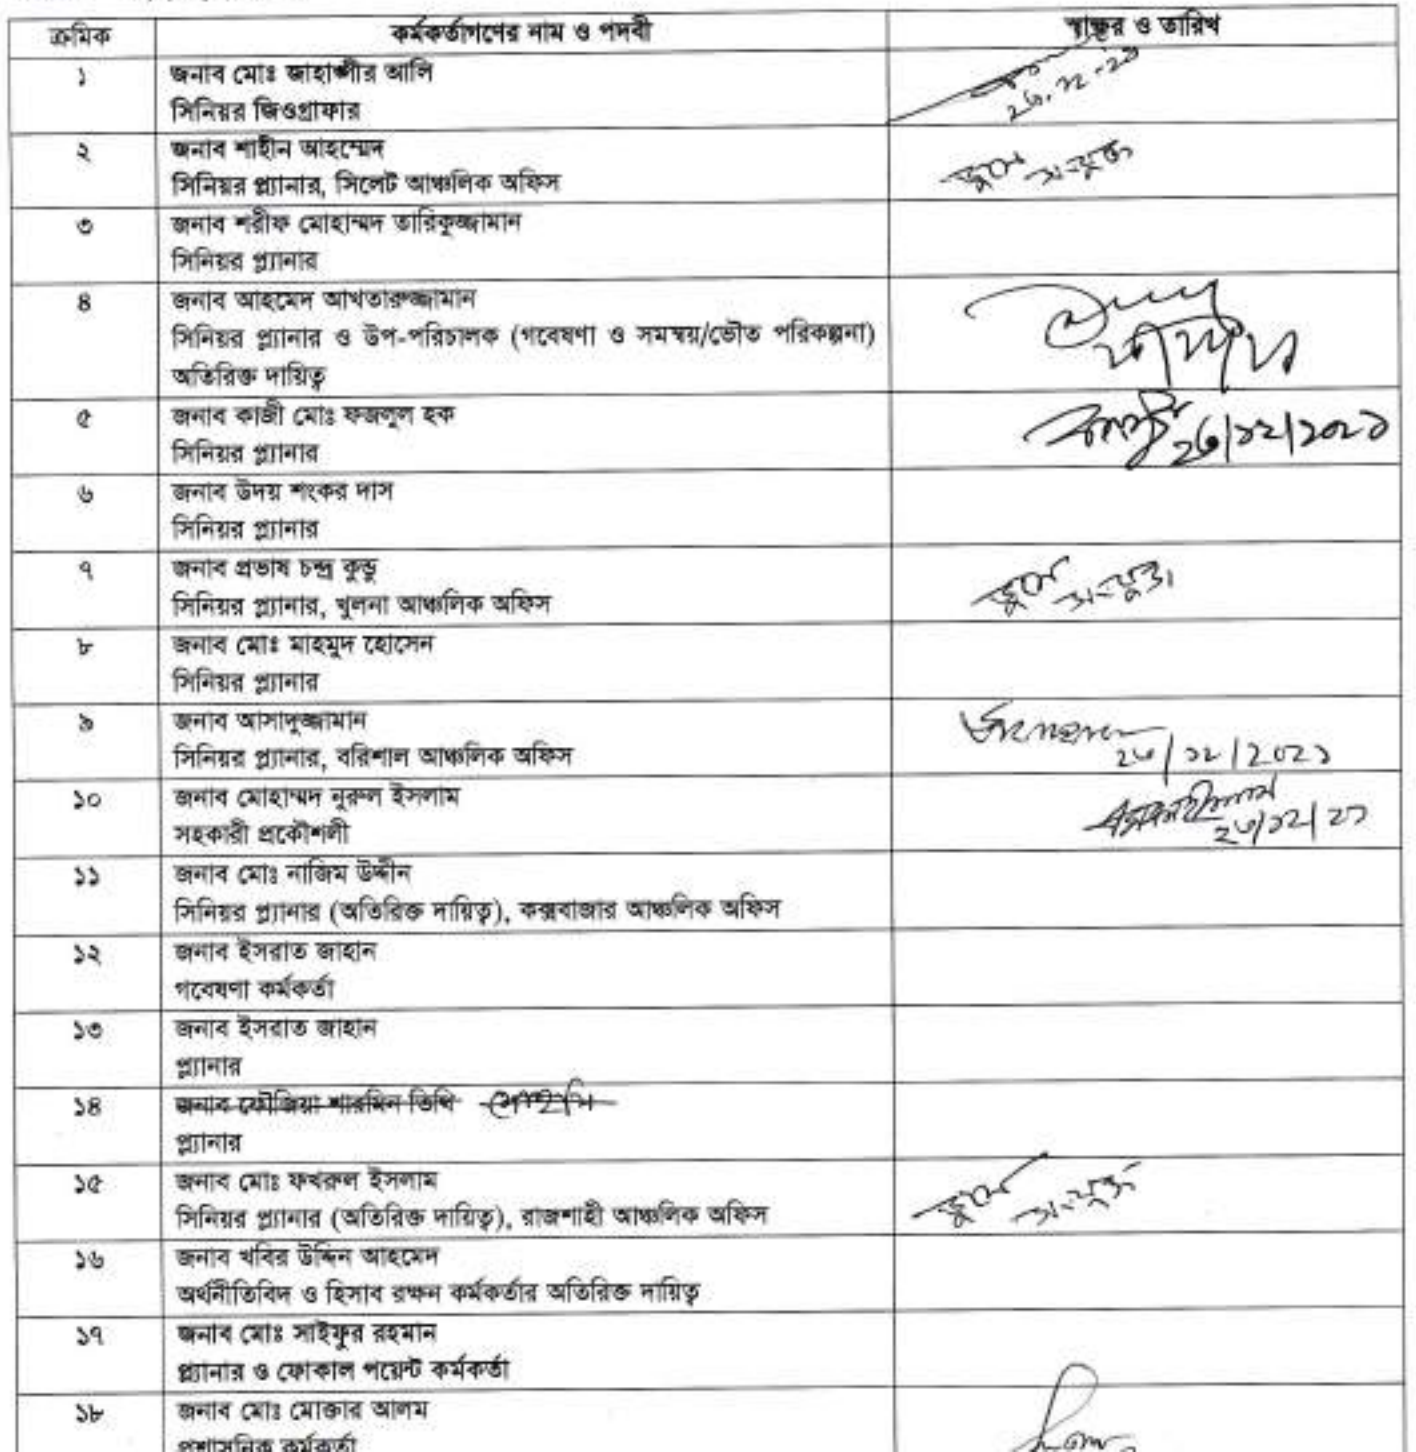 ক্রমিক কর্মকর্তাগণের নাম ও পদবী স্বাক্ষর ও তারিখ
১ জনাব মোঃ জাহাঙ্গীর আলি
সিনিয়র জিওগ্রাফার
২ জনাব শাহীন আহম্মেদ জুমে সংযুক্ত
সিনিয়র প্ল্যানার, সিলেট আঞ্চলিক অফিস
৩ জনাব শরীফ মোহাম্মদ তারিকুজ্জামান
সিনিয়র প্ল্যানার
৪ জনাব আহমেদ আখতারুজ্জামান
সিনিয়র প্ল্যানার ও উপ-পরিচালক (গবেষণা ও সমন্বয়/ভৌত পরিকল্পনা)
অতিরিক্ত দায়িত্ব
৫ জনাব কাজী মোঃ ফজলুল হক ২৬/১২/২০২১
সিনিয়র প্ল্যানার
৬ জনাব উদয় শংকর দাস
সিনিয়র প্ল্যানার
৭ জনাব প্রভাষ চন্দ্র কুন্ডু জুমে সংযুক্ত
সিনিয়র প্ল্যানার, খুলনা আঞ্চলিক অফিস
৮ জনাব মোঃ মাহমুদ হোসেন
সিনিয়র প্ল্যানার
৯ জনাব আসাদুজ্জামান
সিনিয়র প্ল্যানার, বরিশাল আঞ্চলিক অফিস ২৬/১২/২০২১
১০ জনাব মোহাম্মদ নুরুল ইসলাম
সহকারী প্রকৌশলী ২৬/১২/২১
১১ জনাব মোঃ নাজিম উদ্দীন
সিনিয়র প্ল্যানার (অতিরিক্ত দায়িত্ব), কক্সবাজার আঞ্চলিক অফিস
১২ জনাব ইসরাত জাহান
গবেষণা কর্মকর্তা
১৩ জনাব ইসরাত জাহান
প্ল্যানার
১৪ জনাব ফৌজিয়া শারমিন তিথি
প্ল্যানার
১৫ জনাব মোঃ ফখরুল ইসলাম জুমে সংযুক্ত
সিনিয়র প্ল্যানার (অতিরিক্ত দায়িত্ব), রাজশাহী আঞ্চলিক অফিস
১৬ জনাব খবির উদ্দিন আহমেদ
অর্থনীতিবিদ ও হিসাব রক্ষন কর্মকর্তার অতিরিক্ত দায়িত্ব
১৭ জনাব মোঃ সাইফুর রহমান
প্ল্যানার ও ফোকাল পয়েন্ট কর্মকর্তা
১৮ জনাব মোঃ মোক্তার আলম
প্রশাসনিক কর্মকর্তা